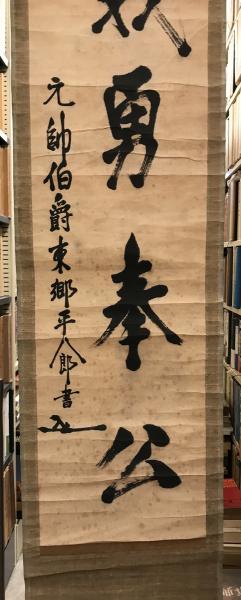 義勇奉公
元帥伯爵東郷平八郎書